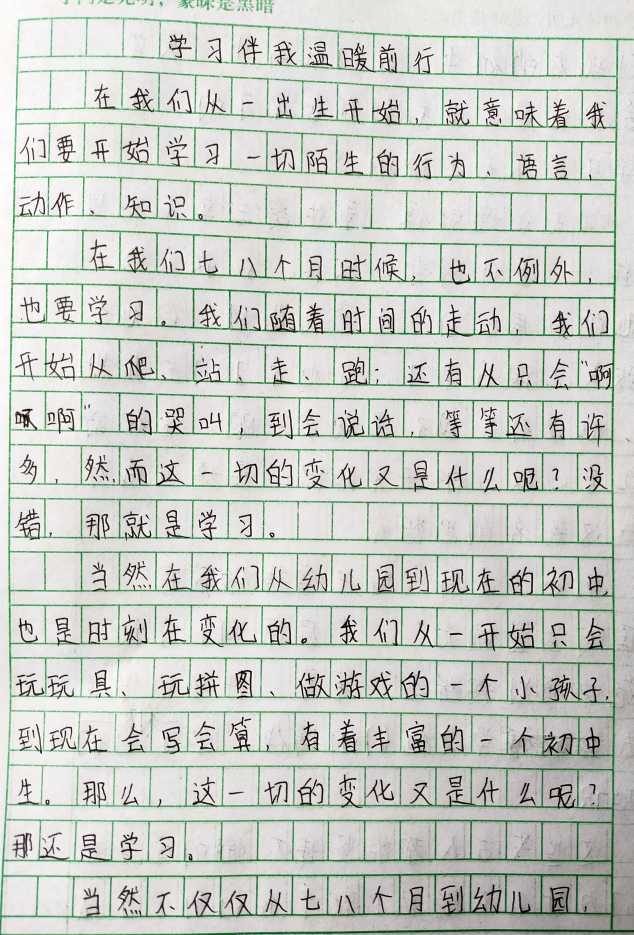 蒙昧是黑暗
学习伴我温暖前行
在我们从一出生开始，就意味着我
们要开始学习一切陌生的行为、语言、
动作、知识。
在我们七八个月时候，也不例外，
也要学习。我们随着时间的走动，我们
开始从爬、站、走、跑；还有从只会“啊
啊”的哭叫，到会说话，等等还有许
多，然而这一切的变化又是什么呢？没
错，那就是学习。
当然在我们从幼儿园到现在的初中
也是时刻在变化的。我们从一开始只会
玩玩具、玩拼图、做游戏的一个小孩子，
到现在会写会算，有着丰富的一个初中
生。那么，这一切的变化又是什么呢？
那还是学习。
当然不仅仅从七八个月到幼儿园，